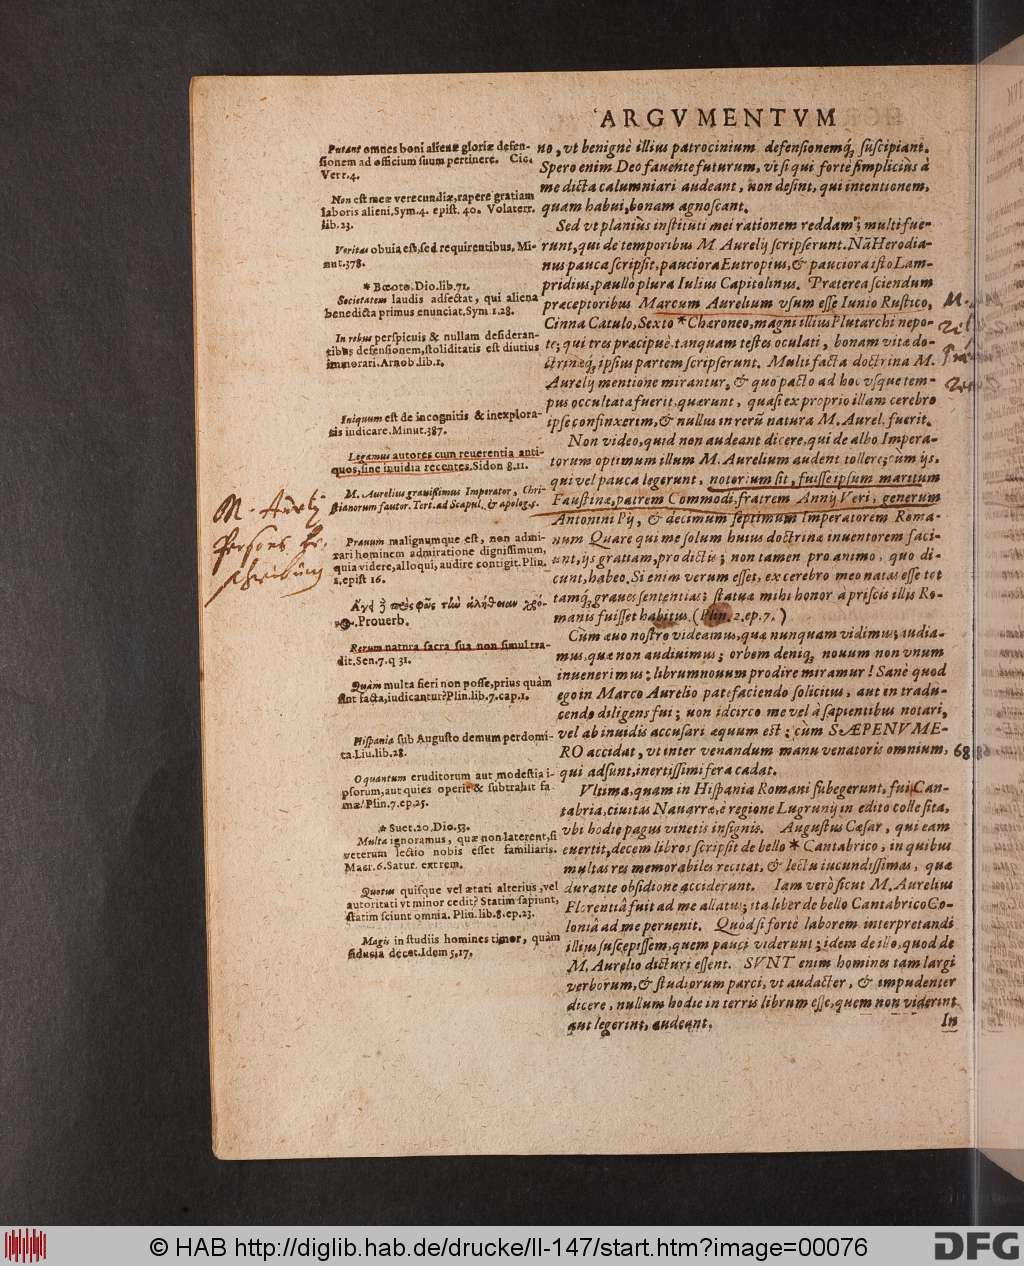 ARGVMENTVM
no, vt benignè illius patrocinium defensionemq́; suscipiant.
Spero enim Deo fauente futurum, vt si qui fortè simpliciùs à
me dicta calumniari audeant, non desint, qui intentionem,
quam habui, bonam agnoscant.
Sed vt planiùs instituti mei rationem reddam; multi fue-
runt, qui de temporibus M. Aurelij scripserunt. Nā Herodia-
nus pauca scripsit, pauciora Eutropius, & pauciora isto Lam-
pridius, paullò plura Iulius Capitolinus. Præterea sciendum
præceptoribus Marcum Aurelium vsum esse Iunio Rustico,
Cinna Catulo, Sexto * Chæroneo, magni illius Plutarchi nepo-
te; qui tres præcipuè tanquam testes oculati, bonam vitæ do-
ctrinæq́; ipsius partem scripserunt. Multi facta doctrina M.
Aurelij mentione mirantur, & quo pacto ad hoc vsque tem-
pus occultata fuerit, quærunt, quasi ex proprio illam cerebro
ipse confinxerim, & nullus in rerū natura M. Aurel. fuerit.
Non video, quid non audeant dicere, qui de albo Impera-
torum optimum illum M. Aurelium audent tollere; cùm ijs,
qui vel pauca legerunt, notorium sit, fuisse ipsum maritum
Faustinæ, patrem Commodi, fratrem Annij Veri, generum
Antonini Pij, & decimum septimum Imperatorem Roma-
num Quare qui me solum huius doctrinæ inuentorem faci-
unt, ijs gratiam, pro dictis; non tamen pro animo, quo di-
cunt, habeo. Si enim verum esset, ex cerebro meo natas esse tot
tamq́; graues sententias; statuæ mihi honor à priscis illis Ro-
manis fuisset habitus. (Plin. 2. ep. 7. )
Cùm æuo nostro videamus, quæ nunquam vidimus; audia-
mus, quæ non audiuimus; orbem deniq́; nouum non vnum
inuenerimus; librum nouum prodire miramur! Sanè quod
ego in Marco Aurelio patefaciendo solicitus, aut in tradu-
cendo diligens fui; non idcirco me vel à sapientibus notari,
vel ab inuidis accusari æquum est; cùm SÆPENVME-
RO accidat, vt inter venandum manu venatoris omnium,
qui adsunt, inertissimi fera cadat.
Vltima, quam in Hispania Romani subegerunt, fuit Can-
tabria, ciuitas Nauarræ, è regione Lugrunij in edito colle sita,
vbi hodie pagus vinetis insignis. Augustus Cæsar, qui eam
euertit, decem libros scripsit de bello * Cantabrico, in quibus
multas res memorabiles recitat, & lectu iucundissimas, quæ
durante obsidione acciderunt. Iam verò sicut M. Aurelius
Florentiâ fuit ad me allatus; ita liber de bello Cantabrico Co-
loniâ ad me peruenit. Quòd si fortè laborem interpretandi
illius suscepissem, quem pauci viderunt; idem de illo, quod de
M. Aurelio dicturi essent. SVNT enim homines tam largi
verborum, & studiorum parci, vt audacter, & impudenter
dicere, nullum hodie in terris librum esse, quem non viderint
aut legerint, audeant.
In
Putant omnes boni alienæ gloriæ defen-
sionem ad officium suum pertinere. Cic.
Verr. 4.
Non est meæ verecundiæ, rapere gratiam
laboris alieni, Sym. 4. epist. 40. Volaterr.
lib. 23.
Veritas obuia est, sed requirentibus. Mi-
nut. 378.
* Bœoto. Dio. lib. 71.
Societatem laudis adfectat, qui aliena
benedicta primus enunciat. Sym 1. 28.
In rebus perspicuis & nullam desideran-
tibus defensionem, stoliditatis est diutius
immorari. Arnob. lib. 1.
Iniquum est de incognitis & inexplora-
tis iudicare. Minut. 387.
Legamus autores cum reuerentia anti-
quos, sine inuidia recentes. Sidon 8. 11.
M. Aurelius grauissimus Imperator, Chri-
stianorum fautor. Tert. ad Scapul. & apologet.
Prauum malignumque est, non admi-
rari hominem admiratione dignissimum,
quia videre, alloqui, audire contigit. Plin.
1. epist 16.
Ἄγει δὲ πρὸς φῶς τὴν ἀλήθειαν χρό-
νος. Prouerb.
Rerum natura sacra sua non simul tra-
dit. Sen. 7. q 31.
Quàm multa fieri non posse, prius quàm
sint facta, iudicantur? Plin. lib. 7. cap. 1.
Hispania sub Augusto demum perdomi-
ta. Liu. lib. 28.
O quantum eruditorum aut modestia i-
psorum, aut quies operit & subtrahit fa-
mæ! Plin. 7. ep. 25.
* Suet. 20. Dio. 53.
Multa ignoramus, quæ non laterent, si
veterum lectio nobis esset familiaris.
Macr. 6. Satur. extrem.
Quotus quisque vel ætati alterius, vel
autoritati vt minor cedit? Statim sapiunt,
statim sciunt omnia. Plin. lib. 8. ep. 23.
Magis in studiis homines timor, quàm
fiducia decet. Idem 5. 17.
M. Aurelij
Persons be-
schreibung
68
© HAB http://diglib.hab.de/drucke/ll-147/start.htm?image=00076
DFG